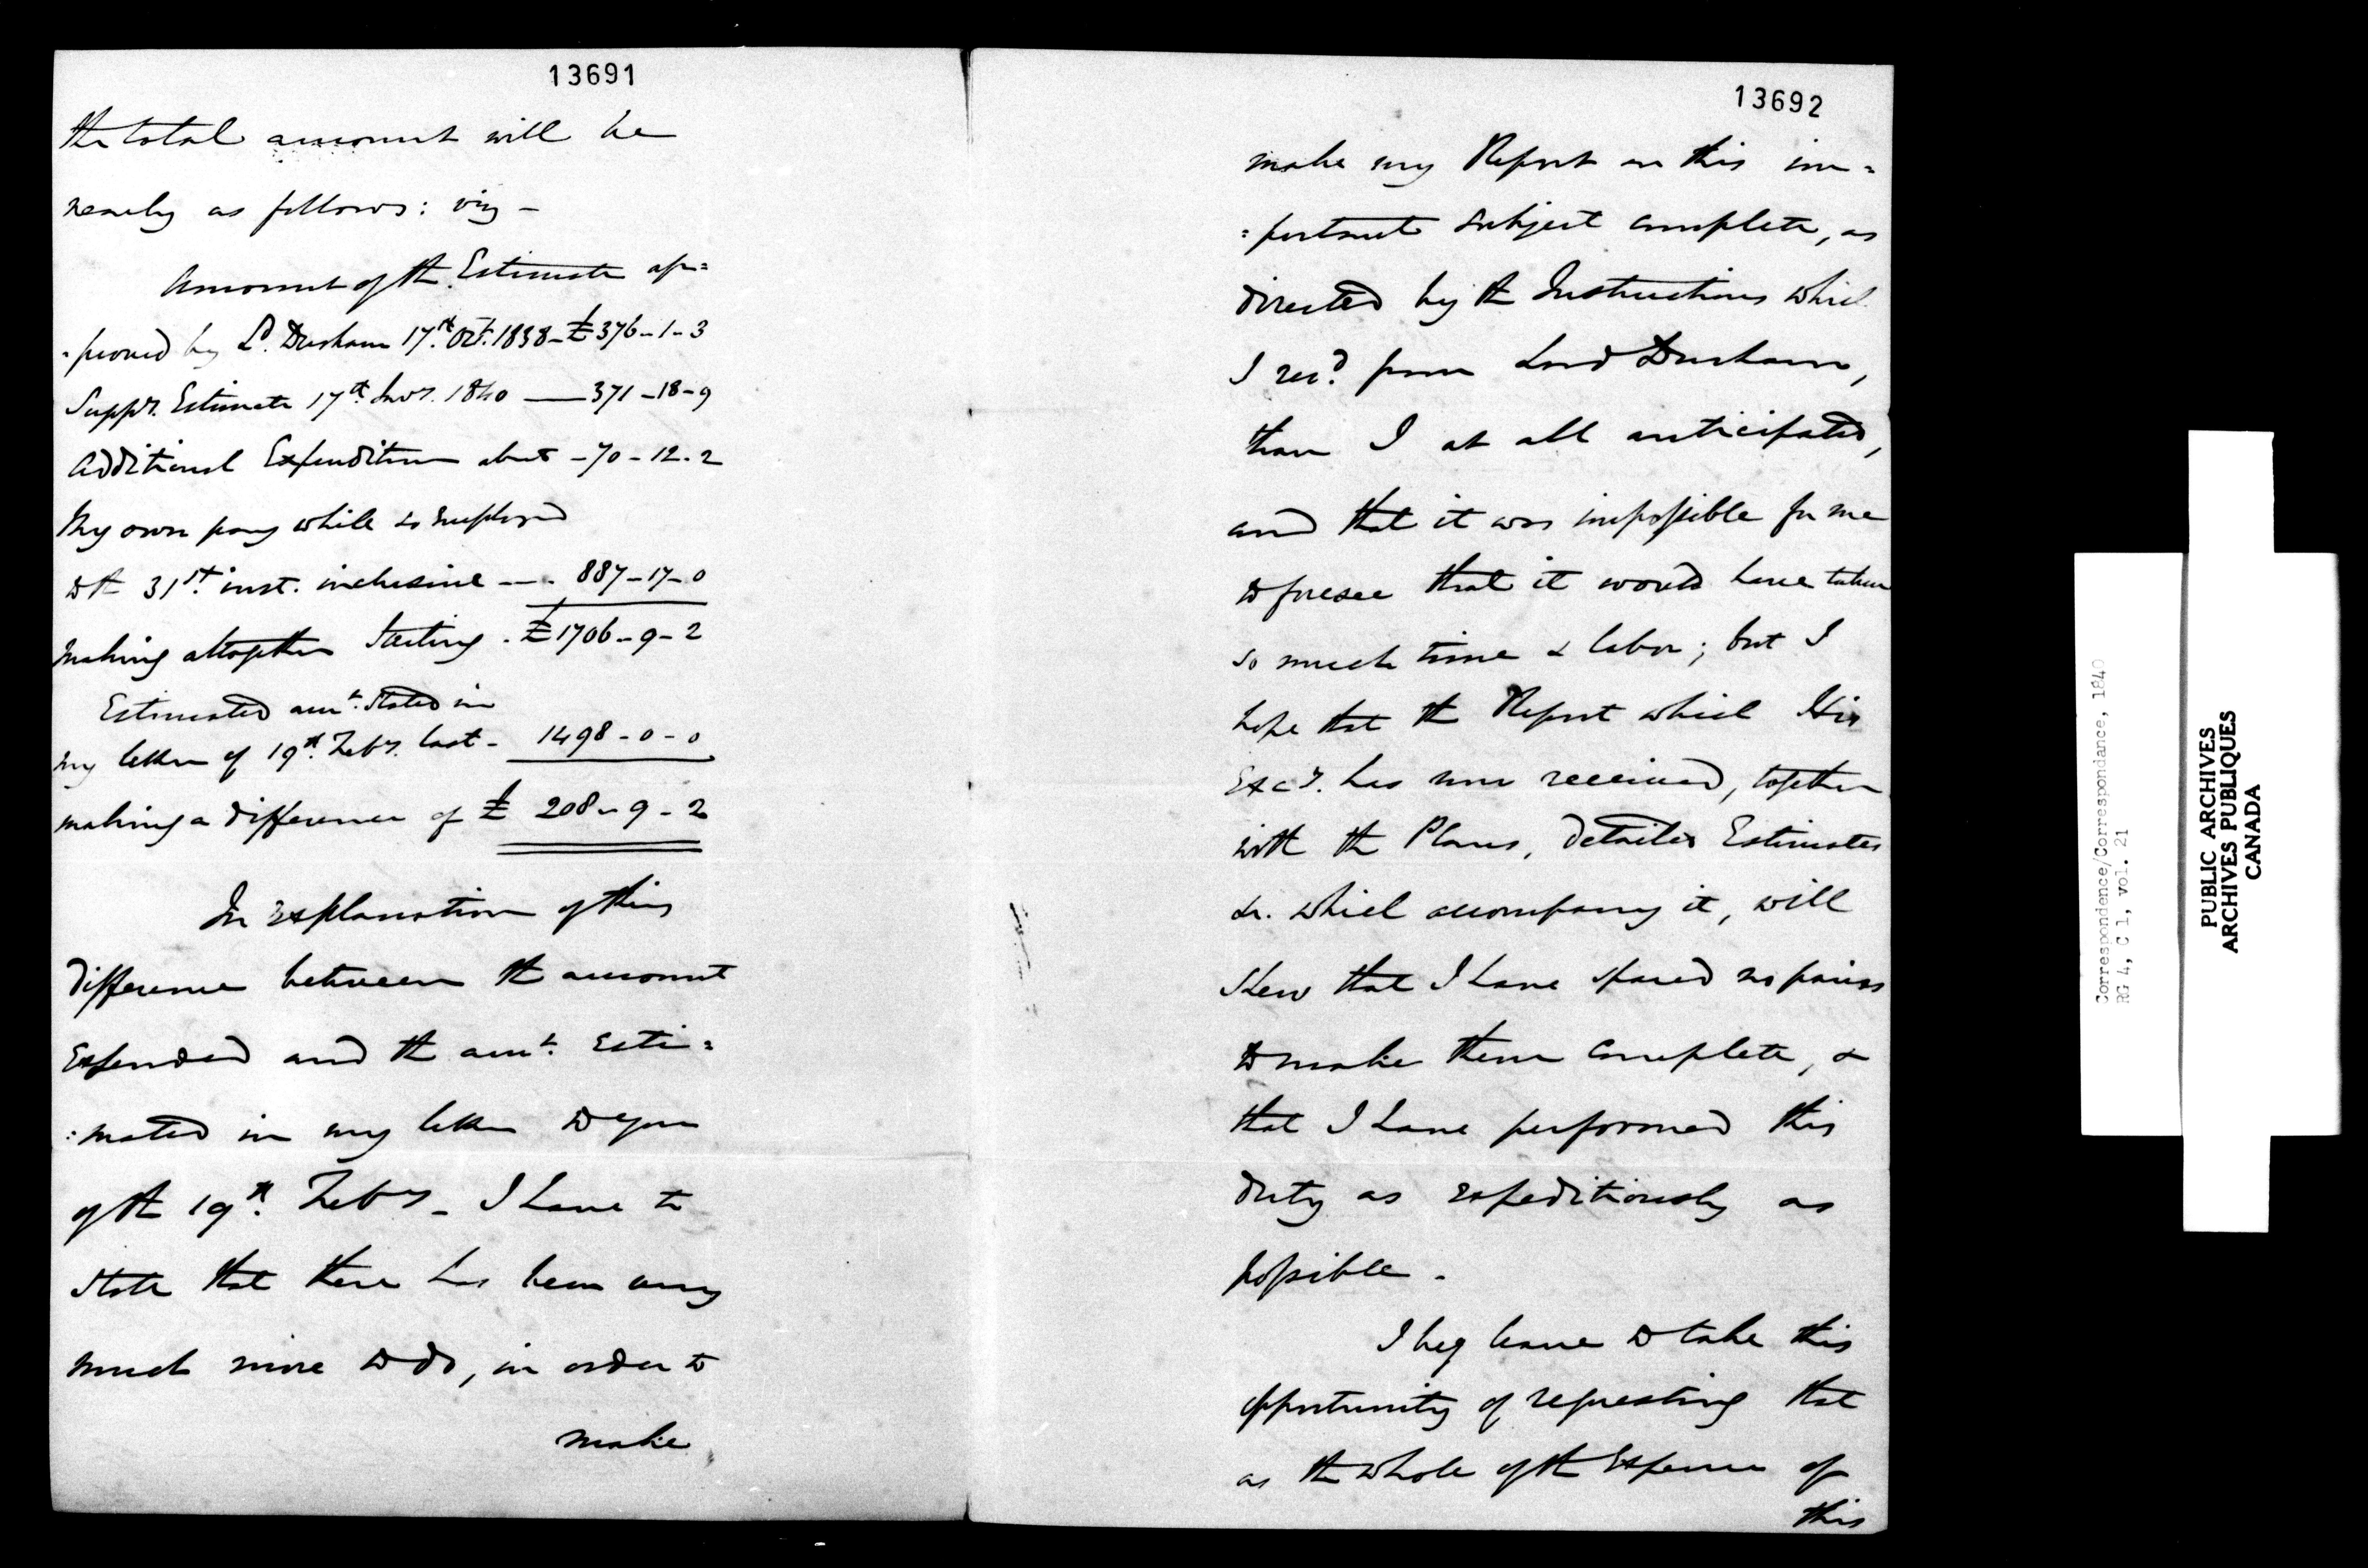 13691
the total amount will be
nearly as follows: viz –
Amount of the Estimate ap=
=proved by Ld. Durham 17th. Oct. 1838 – £376 – 1 – 3
Suppy. Estimate 17th. Jany. 1840 — 371 – 18 – 9
Additional Expenditure about – 70 – 12 . 2
My own pay while so employed
to the 31st. inst. inclusive — . 887 – 17 – 0
making altogether Sterling . £1706 – 9 – 2
Estimated amt. stated in
my letter of 19th. Feby. last – 1498 – 0 – 0
making a difference of £ 208 – 9 – 2
In explanation of this
difference between the amount
expended and the amt. esti=
:mated in my letter to you
of the 19th. Feby – I have to
state that there has been very
much more to do, in order to
make
13692
make my Report on this im=
=portant subject complete, as
directed by the Instructions which
I recd. from Lord Durham,
than I at all anticipated,
and that it was impossible for me
to foresee that it would have taken
so much time & labor; but I
hope that the Report which His
Excy. has now received, together
with the Plans, detailed Estimates
&c. which accompany it, will
shew that I have spared no pains
to make them complete, &
that I have performed this
duty as expeditiously as
possible .
I beg leave to take this
opportunity of requesting that
as the whole of the Expense of
this
Correspondence/Correspondance, 1840
RG 4, C 1, vol. 21
PUBLIC ARCHIVES
ARCHIVES PUBLIQUES
CANADA